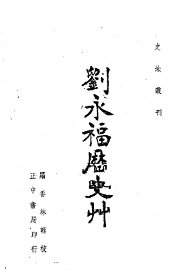 史地叢刊
劉永福歷史艸
羅香林輯校
正中書局印行